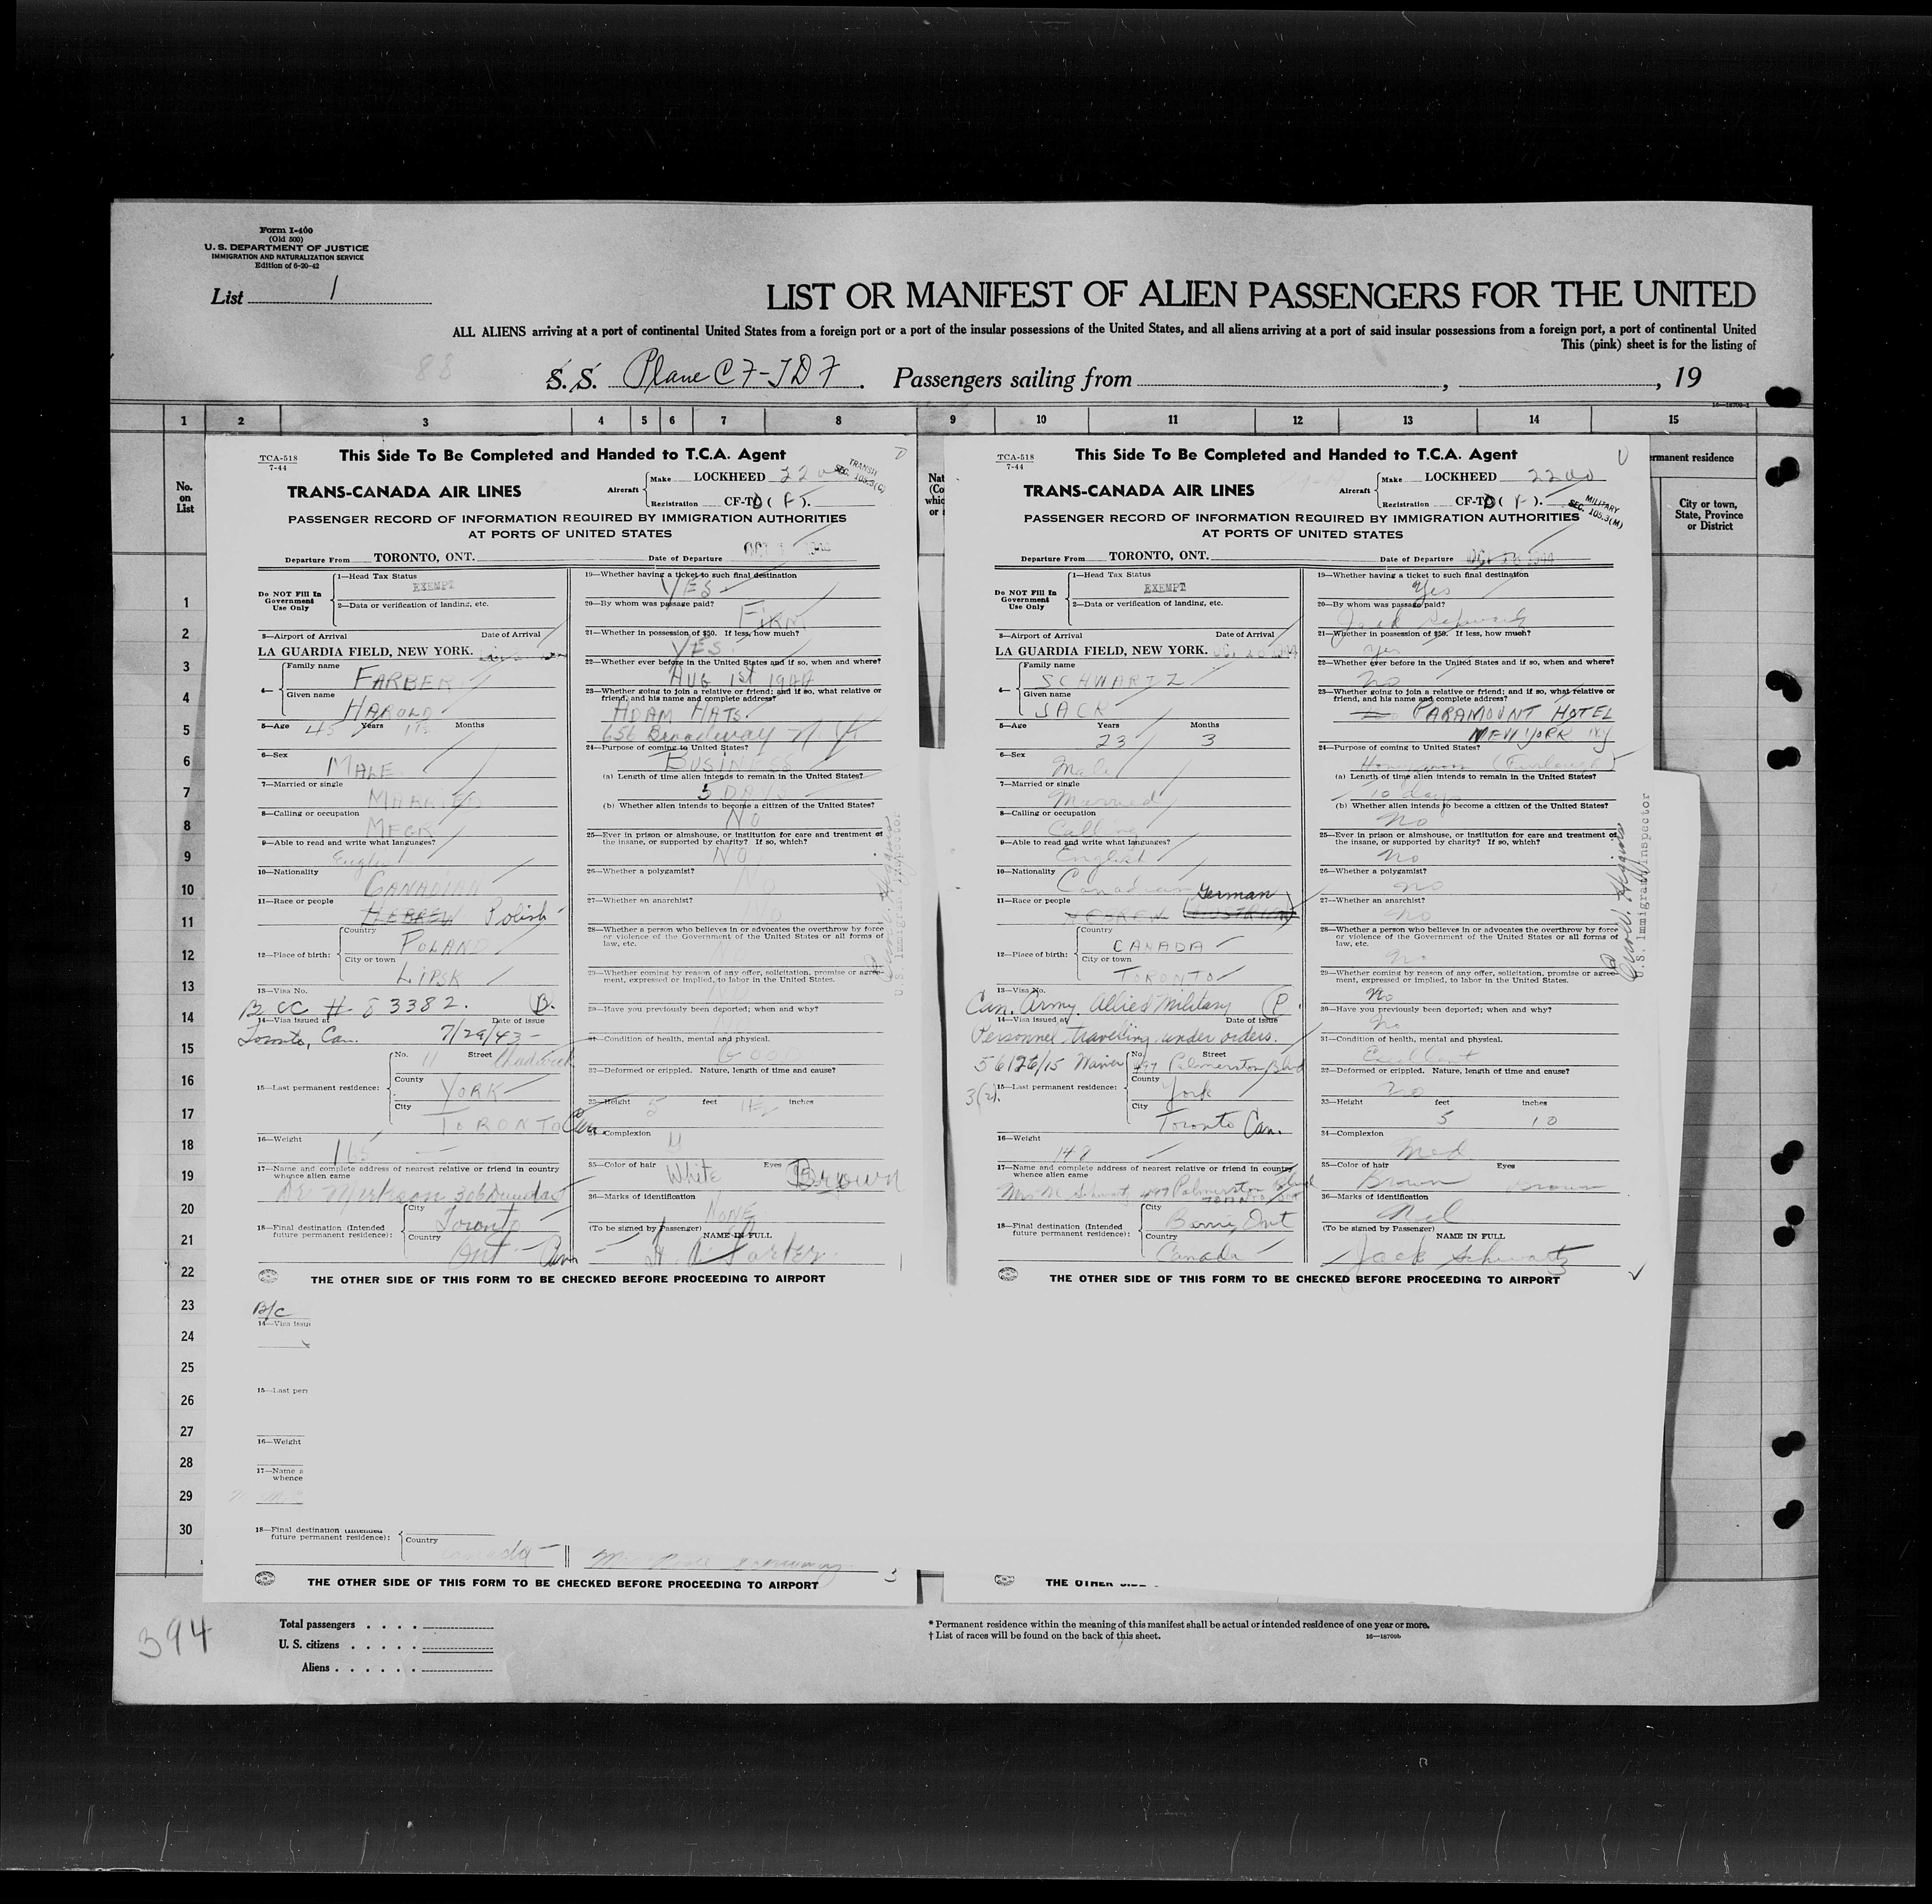 Form I-400
(Old 500)
U. S. DEPARTMENT OF JUSTICE
IMMIGRATION AND NATURALIZATION SERVICE
Edition of 6-20-42
List 1
LIST OR MANIFEST OF ALIEN PASSENGERS FOR THE UNITED
ALL ALIENS arriving at a port of continental United States from a foreign port or a port of the insular possessions of the United States, and all aliens arriving at a port of said insular possessions from a foreign port, a port of continental United
This (pink) sheet is for the listing of
88
S. S. Plane CF-TDF. Passengers sailing from , , 19
1 2 3 4 5 6 7 8 9 10 11 12 13 14 15
No. on List
TCA-518
7-44
This Side To Be Completed and Handed to T.C.A. Agent
TRANS-CANADA AIR LINES
Aircraft
Make LOCKHEED
TRANSIT
SEC. 105.3(C)
Registration CF-TD (F).
PASSENGER RECORD OF INFORMATION REQUIRED BY IMMIGRATION AUTHORITIES
AT PORTS OF UNITED STATES
Departure From TORONTO, ONT. Date of Departure
Do NOT Fill In Government Use Only
1—Head Tax Status
EXEMPT
2—Data or verification of landing, etc.
3—Airport of Arrival Date of Arrival
LA GUARDIA FIELD, NEW YORK.
4—
Family name
FARBER
Given name
HAROLD
5—Age 45 Years Months
6—Sex
MALE
7—Married or single
MARRIED
8—Calling or occupation
MFGR
9—Able to read and write what languages?
English
10—Nationality
CANADIAN
11—Race or people
HEBREW Polish
12—Place of birth:
Country
POLAND
City or town
LIPSK
13—Visa No.
BCC # 83382. B.
14—Visa issued at Date of issue
Toronto, Can. 7/29/43
15—Last permanent residence:
No. 11 Street Chadwick
County
YORK
City
TORONTO Can.
16—Weight
165
17—Name and complete address of nearest relative or friend in country whence alien came
306 Dundas
18—Final destination (Intended future permanent residence):
City
Toronto
Country
Ont Can
19—Whether having a ticket to such final destination
YES
20—By whom was passage paid?
FIRM
21—Whether in possession of $50. If less, how much?
YES
22—Whether ever before in the United States and if so, when and where?
AUG 1st 1944
23—Whether going to join a relative or friend; and if so, what relative or friend, and his name and complete address?
ADAM HATS
656 Broadway N Y
24—Purpose of coming to United States?
BUSINESS
(a) Length of time alien intends to remain in the United States?
5 DAYS
(b) Whether alien intends to become a citizen of the United States?
NO
25—Ever in prison or almshouse, or institution for care and treatment of the insane, or supported by charity? If so, which?
NO
26—Whether a polygamist?
No
27—Whether an anarchist?
No
28—Whether a person who believes in or advocates the overthrow by force or violence of the Government of the United States or all forms of law, etc.
No
29—Whether coming by reason of any offer, solicitation, promise or agreement, expressed or implied, to labor in the United States.
30—Have you previously been deported; when and why?
31—Condition of health, mental and physical.
GOOD
32—Deformed or crippled. Nature, length of time and cause?
33—Height 5 feet inches
34—Complexion
M
35—Color of hair White Eyes Brown
36—Marks of identification
NONE
(To be signed by Passenger) NAME IN FULL
THE OTHER SIDE OF THIS FORM TO BE CHECKED BEFORE PROCEEDING TO AIRPORT
U.S. Immigrant Inspector
B/C
14—Visa issu
15—Last per
16—Weight
17—Name a
whence
18—Final destination (Intended future permanent residence):
Country
Canada
THE OTHER SIDE OF THIS FORM TO BE CHECKED BEFORE PROCEEDING TO AIRPORT
3
TCA-518
7-44
This Side To Be Completed and Handed to T.C.A. Agent
TRANS-CANADA AIR LINES
Aircraft
Make LOCKHEED 2200
Registration CF-TD (F).
MILITARY
SEC. 105.3(M)
PASSENGER RECORD OF INFORMATION REQUIRED BY IMMIGRATION AUTHORITIES
AT PORTS OF UNITED STATES
Departure From TORONTO, ONT. Date of Departure
Do NOT Fill In Government Use Only
1—Head Tax Status
EXEMPT
2—Data or verification of landing, etc.
3—Airport of Arrival Date of Arrival
LA GUARDIA FIELD, NEW YORK.
4—
Family name
SCHWARTZ
Given name
JACK
5—Age Years Months
23 3
6—Sex
Male
7—Married or single
Married
8—Calling or occupation
Calling
9—Able to read and write what languages?
English
10—Nationality
Canadian
11—Race or people German
HEBREW (AUSTRIAN)
12—Place of birth:
Country
CANADA
City or town
TORONTO
13—Visa No.
Can. Army. Allied Military P.
14—Visa issued at Date of issue
Personnel traveling under orders.
56126/15 Waiver
3(2).
15—Last permanent residence:
No. Street
497 Palmerston Blvd
County
York
City
Toronto Can.
16—Weight
148
17—Name and complete address of nearest relative or friend in country whence alien came
Mrs M Schwartz 497 Palmerston Blvd
TORONTO Ont
18—Final destination (Intended future permanent residence):
City
Barrie Ont
Country
Canada
19—Whether having a ticket to such final destination
Yes
20—By whom was passage paid?
Jack Schwartz
21—Whether in possession of $50. If less, how much?
yes
22—Whether ever before in the United States and if so, when and where?
No
23—Whether going to join a relative or friend; and if so, what relative or friend, and his name and complete address?
PARAMOUNT HOTEL
NEW YORK NY
24—Purpose of coming to United States?
Honeymoon (Furlough)
(a) Length of time alien intends to remain in the United States?
10 days
(b) Whether alien intends to become a citizen of the United States?
No
25—Ever in prison or almshouse, or institution for care and treatment of the insane, or supported by charity? If so, which?
No
26—Whether a polygamist?
no
27—Whether an anarchist?
no
28—Whether a person who believes in or advocates the overthrow by force or violence of the Government of the United States or all forms of law, etc.
no
29—Whether coming by reason of any offer, solicitation, promise or agreement, expressed or implied, to labor in the United States.
No
30—Have you previously been deported; when and why?
no
31—Condition of health, mental and physical.
Excellent
32—Deformed or crippled. Nature, length of time and cause?
no
33—Height feet inches
5 10
34—Complexion
Med.
35—Color of hair Eyes
Brown Brown
36—Marks of identification
Nil
(To be signed by Passenger) NAME IN FULL
Jack Schwartz
THE OTHER SIDE OF THIS FORM TO BE CHECKED BEFORE PROCEEDING TO AIRPORT
U.S. Immigrant Inspector
THE OTHER SIDE
rmanent residence
City or town, State, Province or District
1
2
3
4
5
6
7
8
9
10
11
12
13
14
15
16
17
18
19
20
21
22
23
24
25
26
27
28
29
30
394
Total passengers
U. S. citizens
Aliens
* Permanent residence within the meaning of this manifest shall be actual or intended residence of one year or more.
† List of races will be found on the back of this sheet.
16—18700b